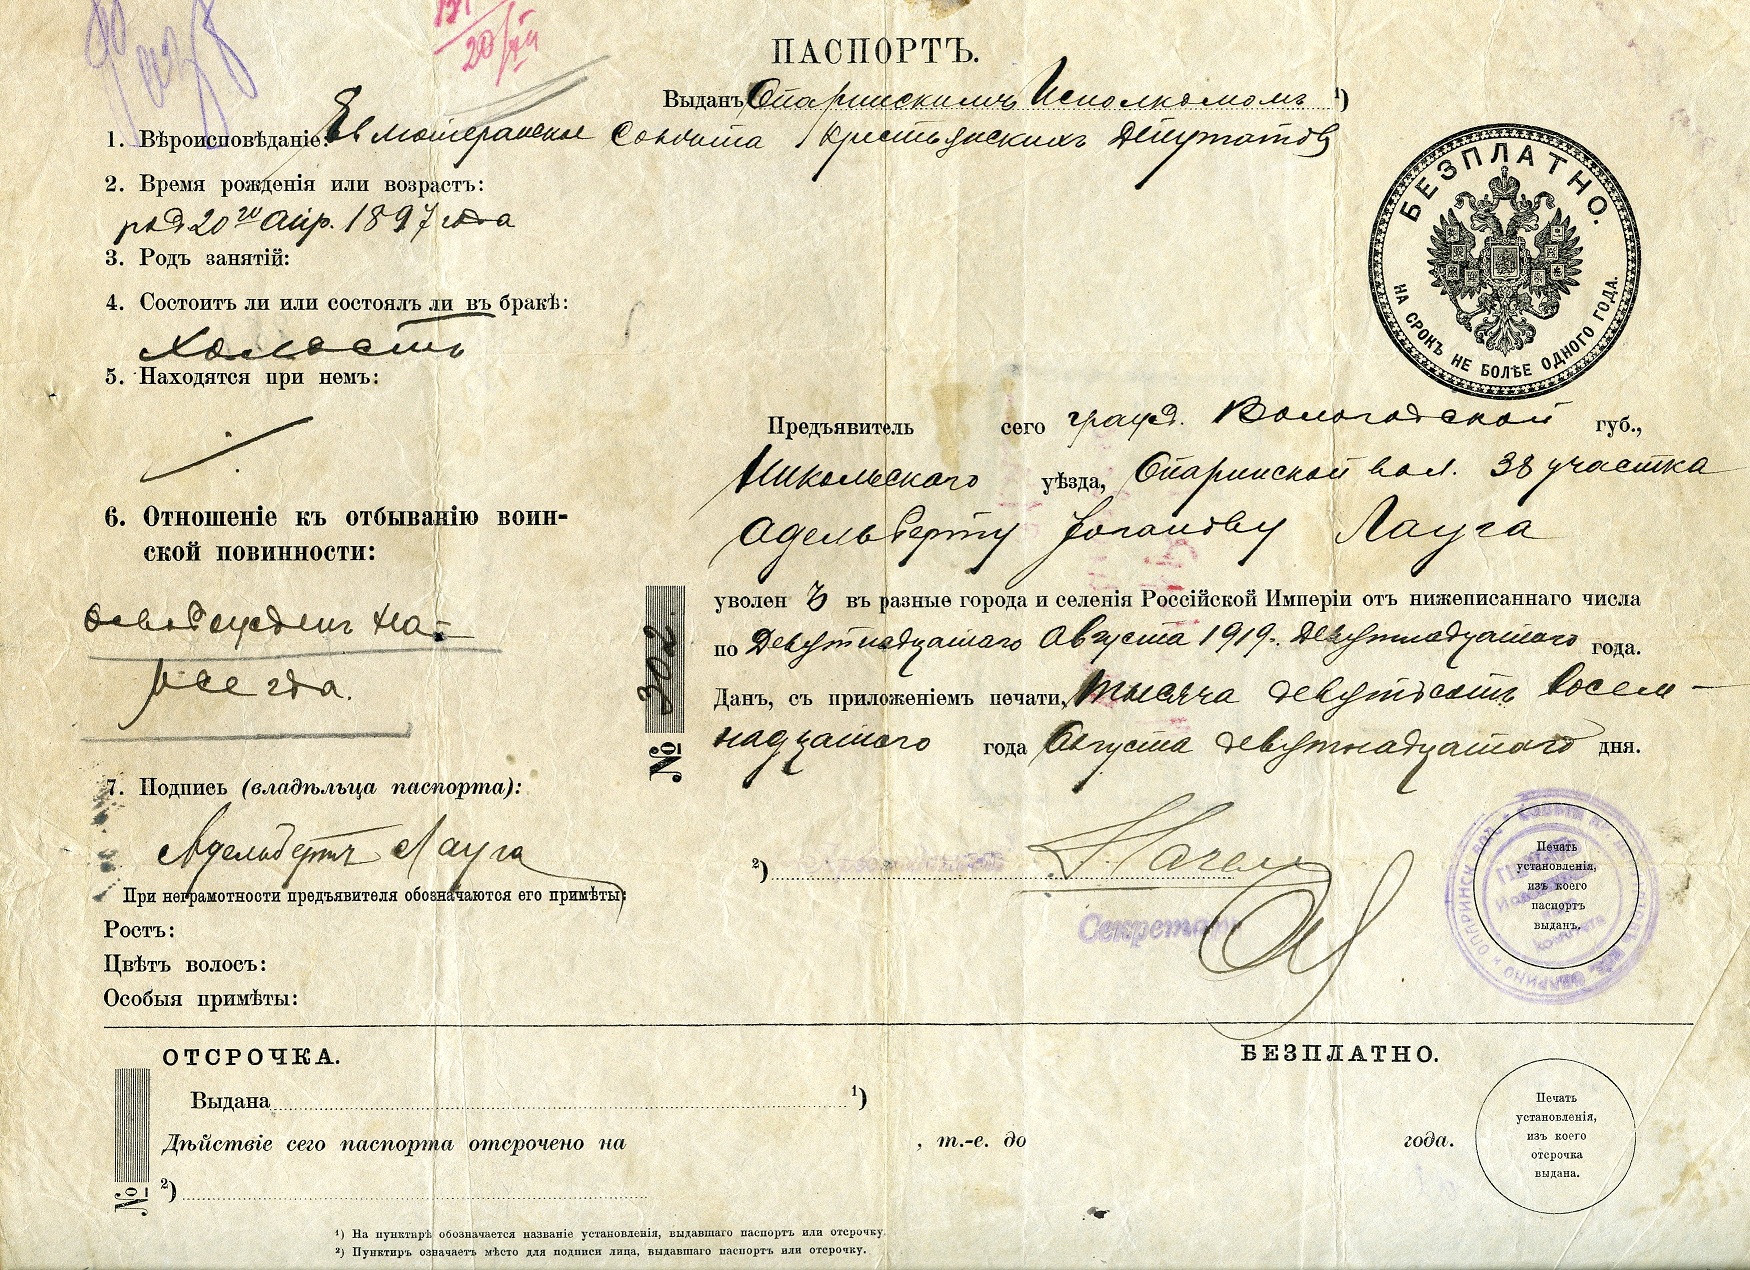 ПАСПОРТЪ.
Выданъ Опаринскимъ Исполкомомъ ¹)
Совѣта Крестьянскихъ Депутатов
1. Вѣроисповѣданіе: Ев лютеранское
2. Время рожденія или возрастъ:
род 20го Апр. 1897 года
3. Родъ занятій:
4. Состоитъ ли или состоялъ ли въ бракѣ:
Холостъ
5. Находятся при немъ:
6. Отношеніе къ отбыванію воин-
ской повинности:
Освобожденъ на-
всегда.
7. Подпись (владѣльца паспорта):
Адельбертъ Лауга
При неграмотности предъявителя обозначаются его примѣты:
Ростъ:
Цвѣтъ волосъ:
Особыя примѣты:
БЕЗПЛАТНО.
НА СРОКЪ НЕ БОЛѢЕ ОДНОГО ГОДА.
Предъявитель сего гражд. Вологодской губ.,
Никольского уѣзда, Опаринской вол. 38 участка
Адельберту Лауга
уволен ъ въ разные города и селенія Россійской Имперіи отъ нижеписаннаго числа
по Девятнадцатого Августа 1919 г. Девятнадцатого года.
Данъ, съ приложеніемъ печати, тысяча девятьсотъ восем-
надцатого года Августа девятнадцатого дня.
№ 302
²)
Секретарь
Печать
установленія,
изъ коего
паспортъ
выданъ.
ОТСРОЧКА.
БЕЗПЛАТНО.
Выдана ¹)
Дѣйствіе сего паспорта отсрочено на , т.-е. до года.
№ ²)
Печать
установленія,
изъ коего
отсрочка
выдана.
¹) На пунктирѣ обозначается названіе установленія, выдавшаго паспортъ или отсрочку.
²) Пунктиръ означаетъ мѣсто для подписи лица, выдавшаго паспортъ или отсрочку.